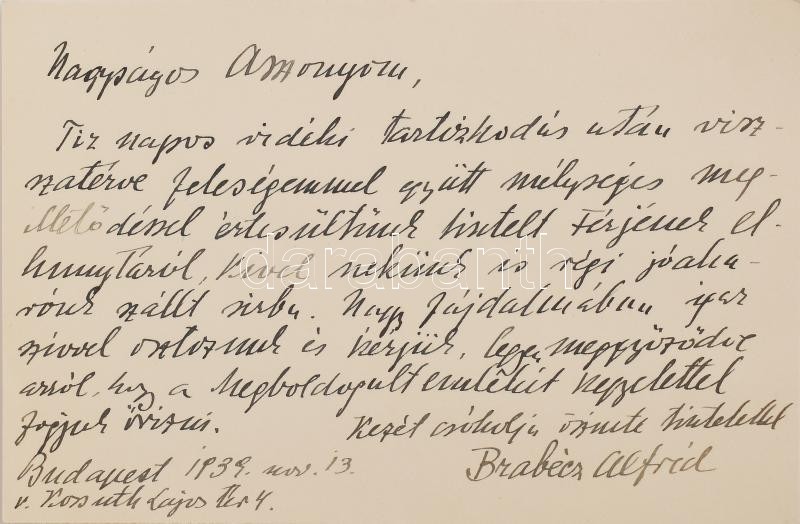 Nagyságos Asszonyom,
Tiz napos vidéki tartózkodás után visz-
szatérve feleségemmel együtt mélységes meg-
illetődéssel értesültünk tisztelt Férjének el-
hunytáról, kivel nekünk is régi jóaka-
rónk szállt sirba. Nagy fájdalmában igaz
szivvel osztozunk és kérjük, legyen meggyőződve
arról, hogy a Megboldogult emlékét kegyelettel
fogjuk őrizni.
Kezét csókolja őszinte tisztelettel
Budapest 1939. nov. 13.
Brabécz Alfréd
v. Kossuth Lajos tér 4.
darabanth